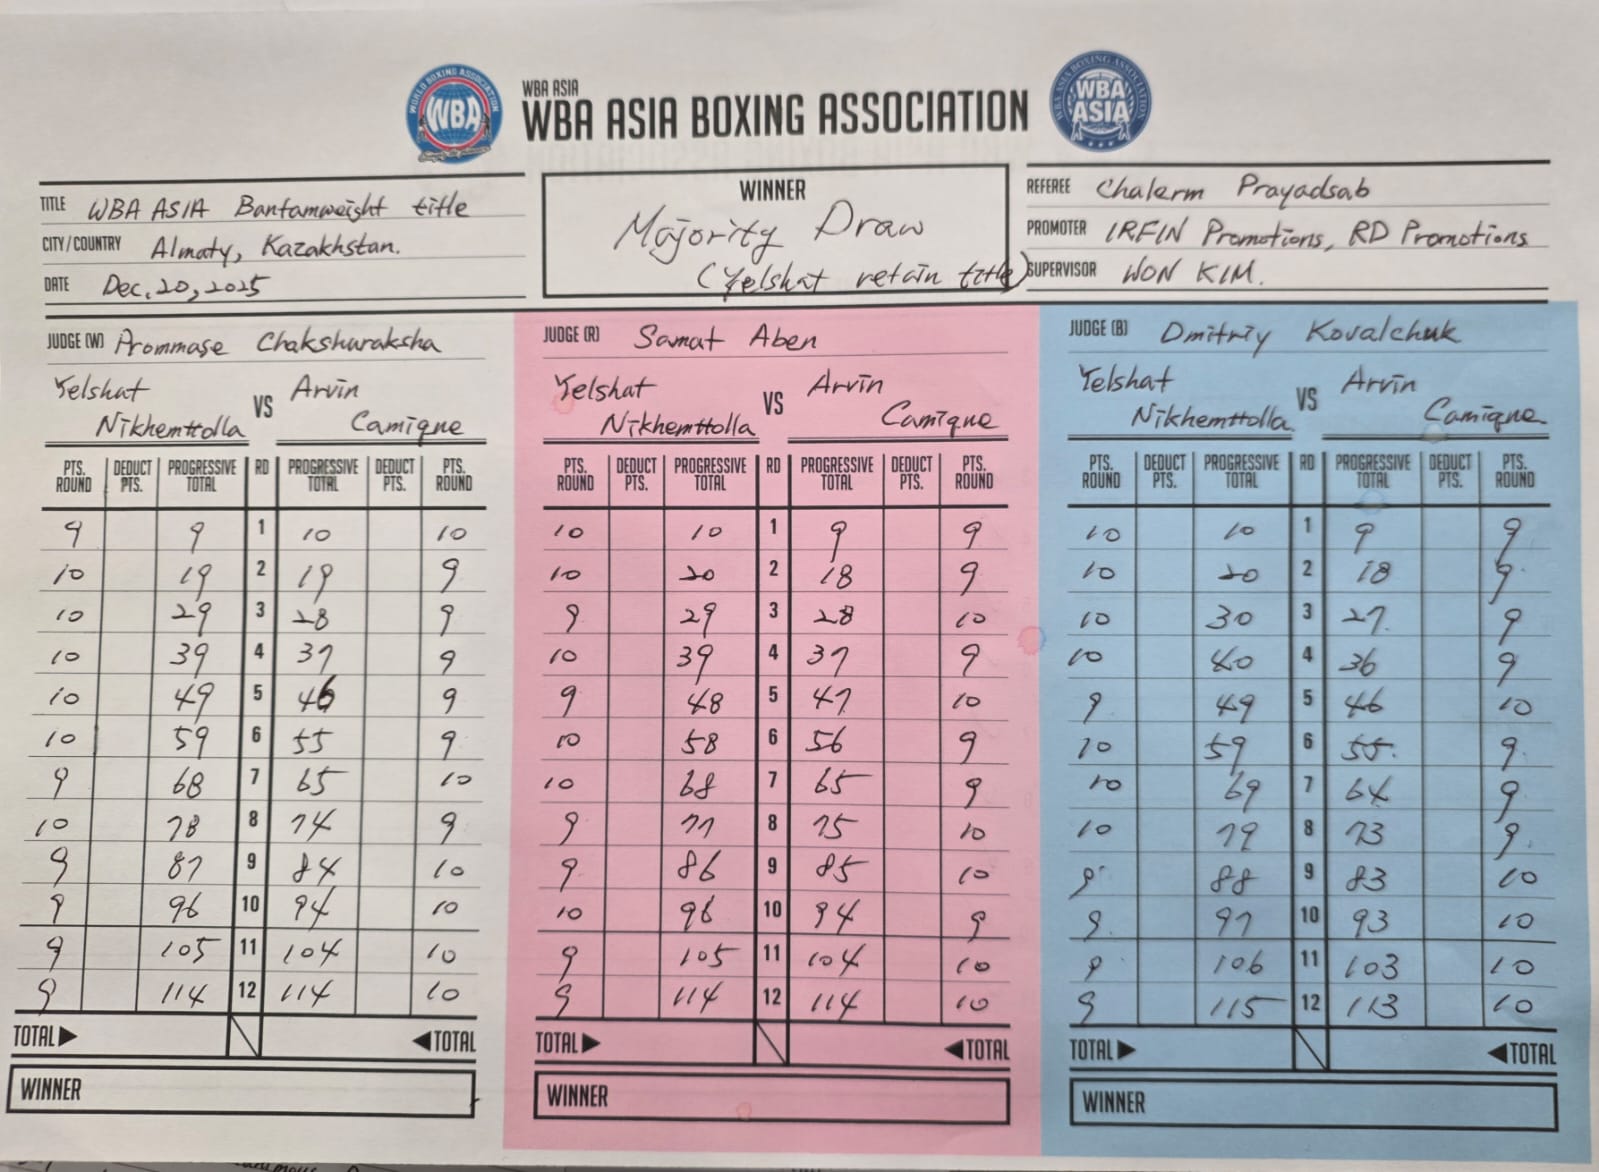 WORLD BOXING ASSOCIATION
WBA
Simply the pioneers
WBA ASIA
WBA ASIA BOXING ASSOCIATION
WBA ASIA BOXING ASSOCIATION
WBA
ASIA
TITLE WBA ASIA Bantamweight title
CITY/COUNTRY Almaty, Kazakhstan.
DATE Dec, 20, 2025
WINNER
Majority Draw
(Yelshat retain title)
REFEREE Chalerm Prayadsab
PROMOTER IRFIN Promotions, RD Promotions
SUPERVISOR WON KIM.
JUDGE (W) Prommase Chakshuraksha
Yelshat
Nikhemttolla
VS
Arvin
Camique
PTS. ROUND DEDUCT PTS. PROGRESSIVE TOTAL RD PROGRESSIVE TOTAL DEDUCT PTS. PTS. ROUND
9 9 1 10 10
10 19 2 19 9
10 29 3 28 9
10 39 4 37 9
10 49 5 46 9
10 59 6 55 9
9 68 7 65 10
10 78 8 74 9
9 87 9 84 10
9 96 10 94 10
9 105 11 104 10
9 114 12 114 10
TOTAL▶ ◀TOTAL
WINNER
JUDGE (R) Samat Aben
Yelshat
Nikhemttolla
VS
Arvin
Camique
PTS. ROUND DEDUCT PTS. PROGRESSIVE TOTAL RD PROGRESSIVE TOTAL DEDUCT PTS. PTS. ROUND
10 10 1 9 9
10 20 2 18 9
9 29 3 28 10
10 39 4 37 9
9 48 5 47 10
10 58 6 56 9
10 68 7 65 9
9 77 8 75 10
9 86 9 85 10
10 96 10 94 9
9 105 11 104 10
9 114 12 114 10
TOTAL▶ ◀TOTAL
WINNER
JUDGE (B) Dmitriy Kovalchuk
Yelshat
Nikhemttolla.
VS
Arvin
Camique
PTS. ROUND DEDUCT PTS. PROGRESSIVE TOTAL RD PROGRESSIVE TOTAL DEDUCT PTS. PTS. ROUND
10 10 1 9 9
10 20 2 18 9.
10 30 3 27. 9
10 40 4 36 9
9 49 5 46 10
10 59 6 55. 9.
10 69 7 64 9
10 79 8 73 9.
9 88 9 83 10
9 97 10 93 10
9 106 11 103 10
9 115 12 113 10
TOTAL▶ ◀TOTAL
WINNER